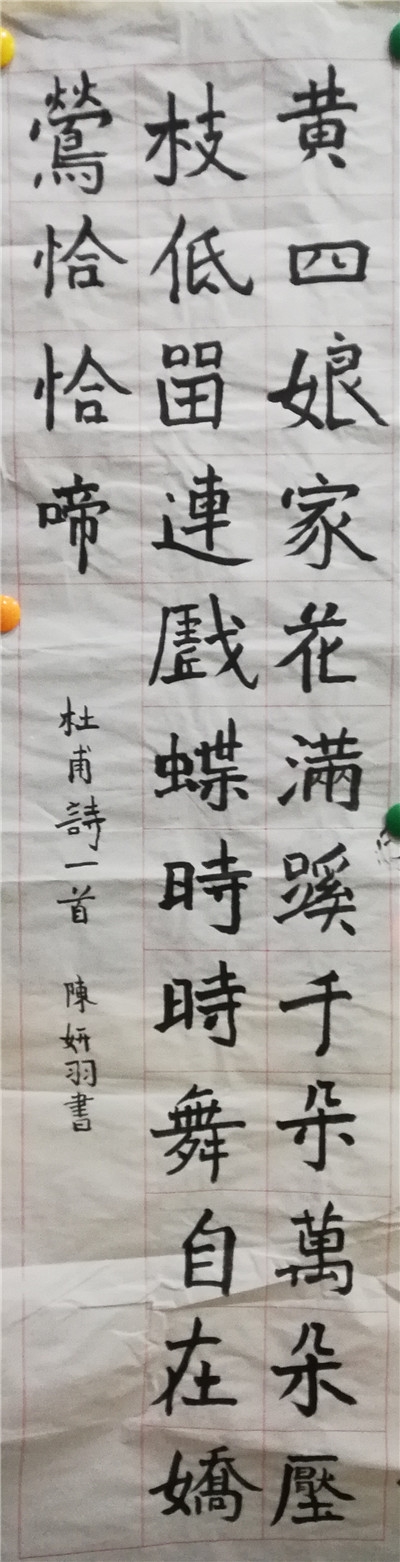 黄四娘家花滿蹊千朵萬朵壓
枝低畱連戲蝶時時舞自在嬌
鶯恰恰啼
杜甫詩一首 陳妍羽書